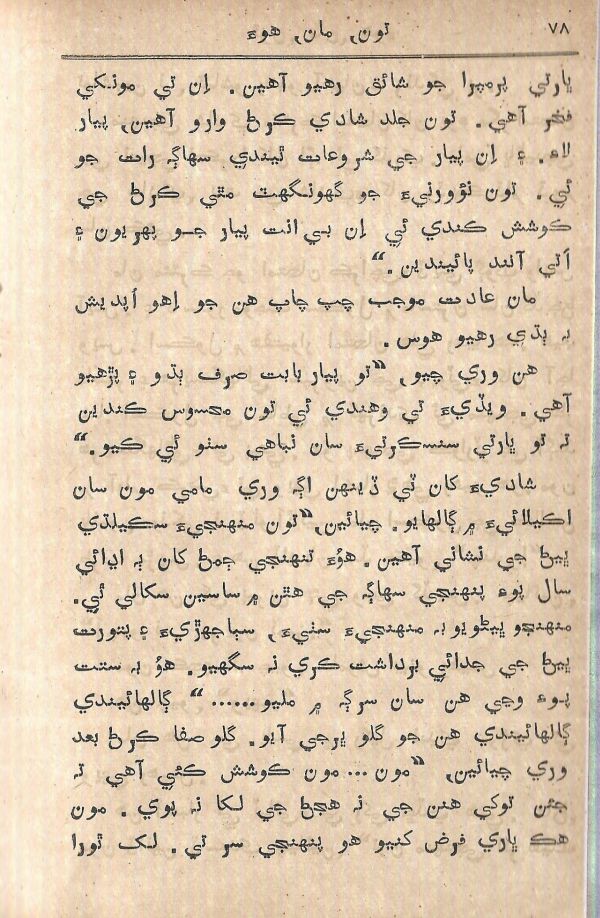 ٧٨
تون، مان، هوءَ
ڀارتي پرمپرا جو شائق رهيو آهين. اِن تي مونکي
فخر آهي. تون جلد شادي ڪرڻ وارو آهين، پيار
لاءِ. ۽ اِن پيار جي شروعات ٿيندي سهاڳ رات جو
ئي. تون نؤورنيءَ جو گهونگهٽ مٿي ڪرڻ جي
ڪوشش ڪندي ئي اِن بي انت پيار جو پهريون ۽
اَتي آنند پائيندين.“
مان عادت موجب چپ چاپ هن جو اِهو اُپديش
بہ ٻڌي رهيو هوس.
هن وري چيو، ”تو پيار بابت صرف ٻڌو ۽ پڙهيو
آهي. ويڏيءَ تي وهندي ئي تون محسوس ڪندين
تہ تو ڀارتي سنسڪرتيءَ سان نباهي سٺو ئي ڪيو.“
شاديءَ کان ٽي ڏينهن اڳ وري مامي مون سان
اڪيلائيءَ ۾ ڳالهايو. چيائين، ”تون منهنجيءَ سڪيلڌي
ڀيڻ جي نشاني آهين. هوءَ تنهنجي ڄمڻ کان بہ اڍائي
سال پوءِ پنهنجي سهاڳ جي هٿن ۾ ساسين سڪالي ئي.
منهنجو ڀيڻويو بہ منهنجيءَ ستيءَ، سٻاجهڙيءَ ۽ پتورت
ڀيڻ جي جدائي برداشت ڪري نہ سگهيو. هوُ بہ ستت
پوءِ وڃي هن سان سرڳ ۾ مليو......“ ڳالهائيندي
ڳالهائيندي هن جو گلو ڀرجي آيو. گلو صفا ڪرڻ بعد
وري چيائين، ”مون...مون ڪوشش ڪئي آهي تہ
جئن توکي هنن جي نہ هجڻ جي لکا نہ پوي. مون
هڪ ڀاري فرض کنيو هو پنهنجي سر تي. لک ٿورا